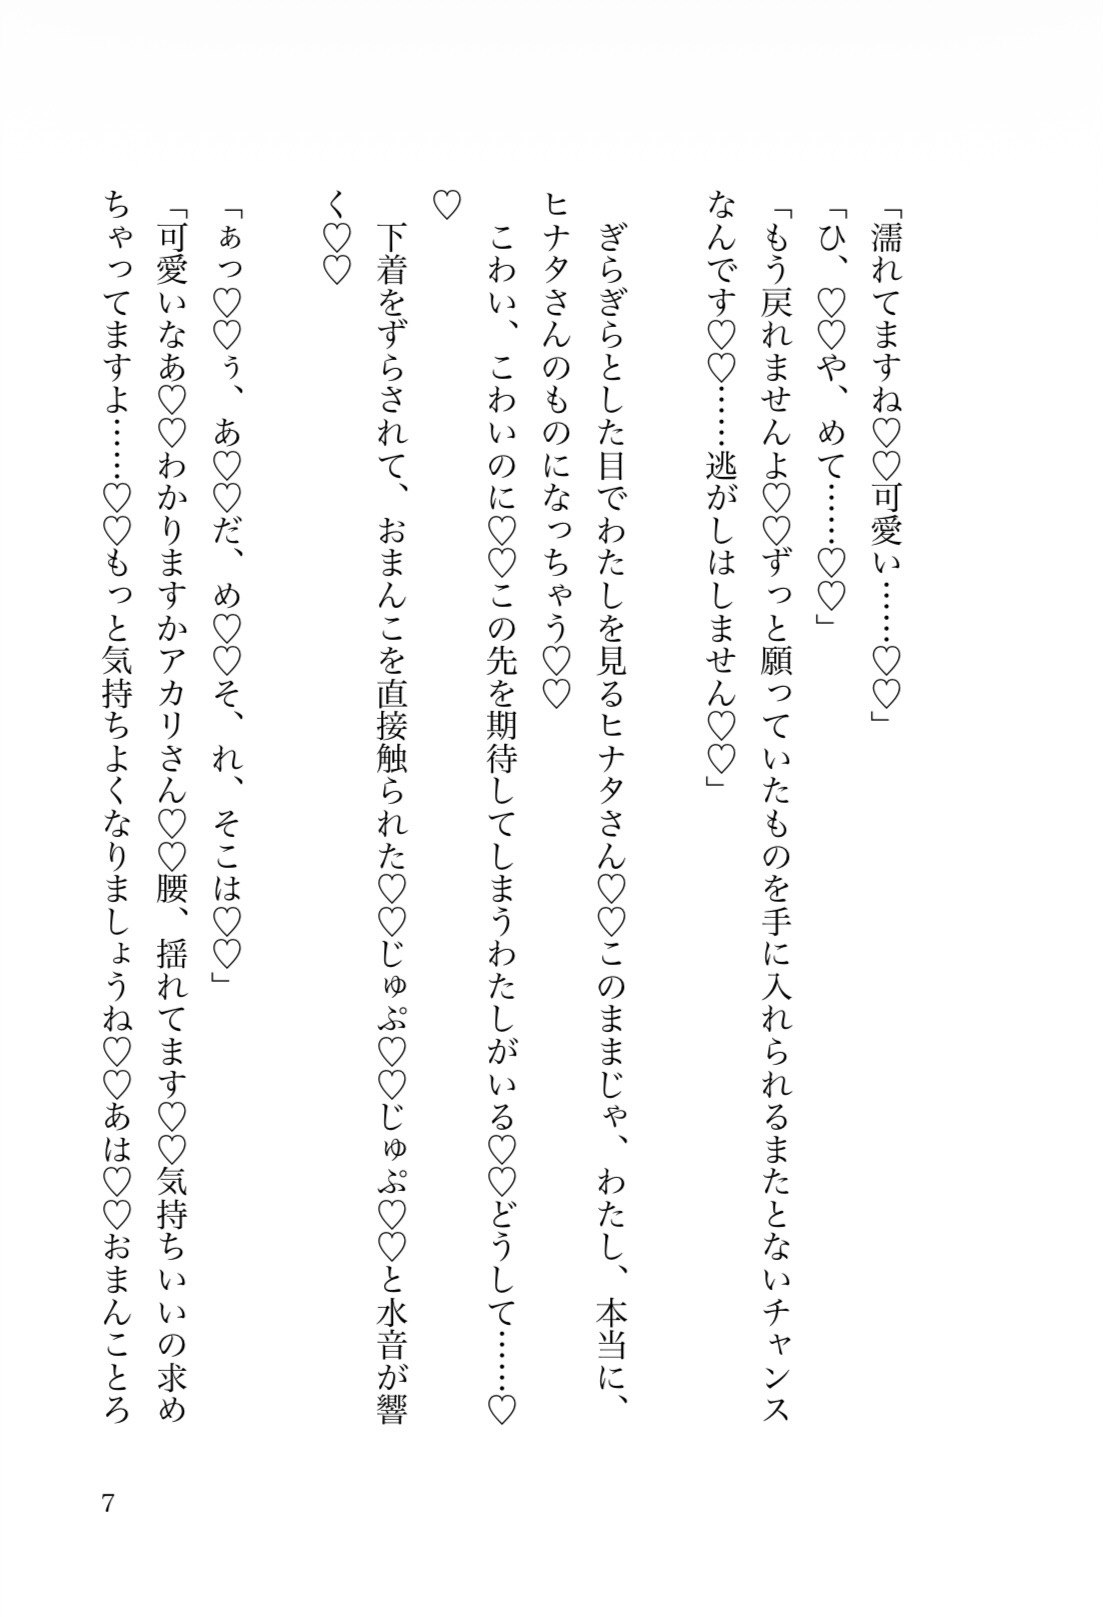 「濡れてますね♡♡可愛い……♡♡」
「ひ、♡♡や、めて……♡♡」
「もう戻れませんよ♡♡ずっと願っていたものを手に入れられるまたとないチャンス
なんです♡♡……逃がしはしません♡♡」
ぎらぎらとした目でわたしを見るヒナタさん♡♡このままじゃ、わたし、本当に、
ヒナタさんのものになっちゃう♡♡
こわい、こわいのに♡♡この先を期待してしまうわたしがいる♡♡どうして……♡
♡
下着をずらされて、おまんこを直接触られた♡♡じゅぷ♡♡じゅぷ♡♡と水音が響
く♡♡
「ぁっ♡♡ぅ、あ♡♡だ、め♡♡そ、れ、そこは♡♡」
「可愛いなあ♡♡わかりますかアカリさん♡♡腰、揺れてます♡♡気持ちいいの求め
ちゃってますよ……♡♡もっと気持ちよくなりましょうね♡♡あは♡♡おまんことろ
7